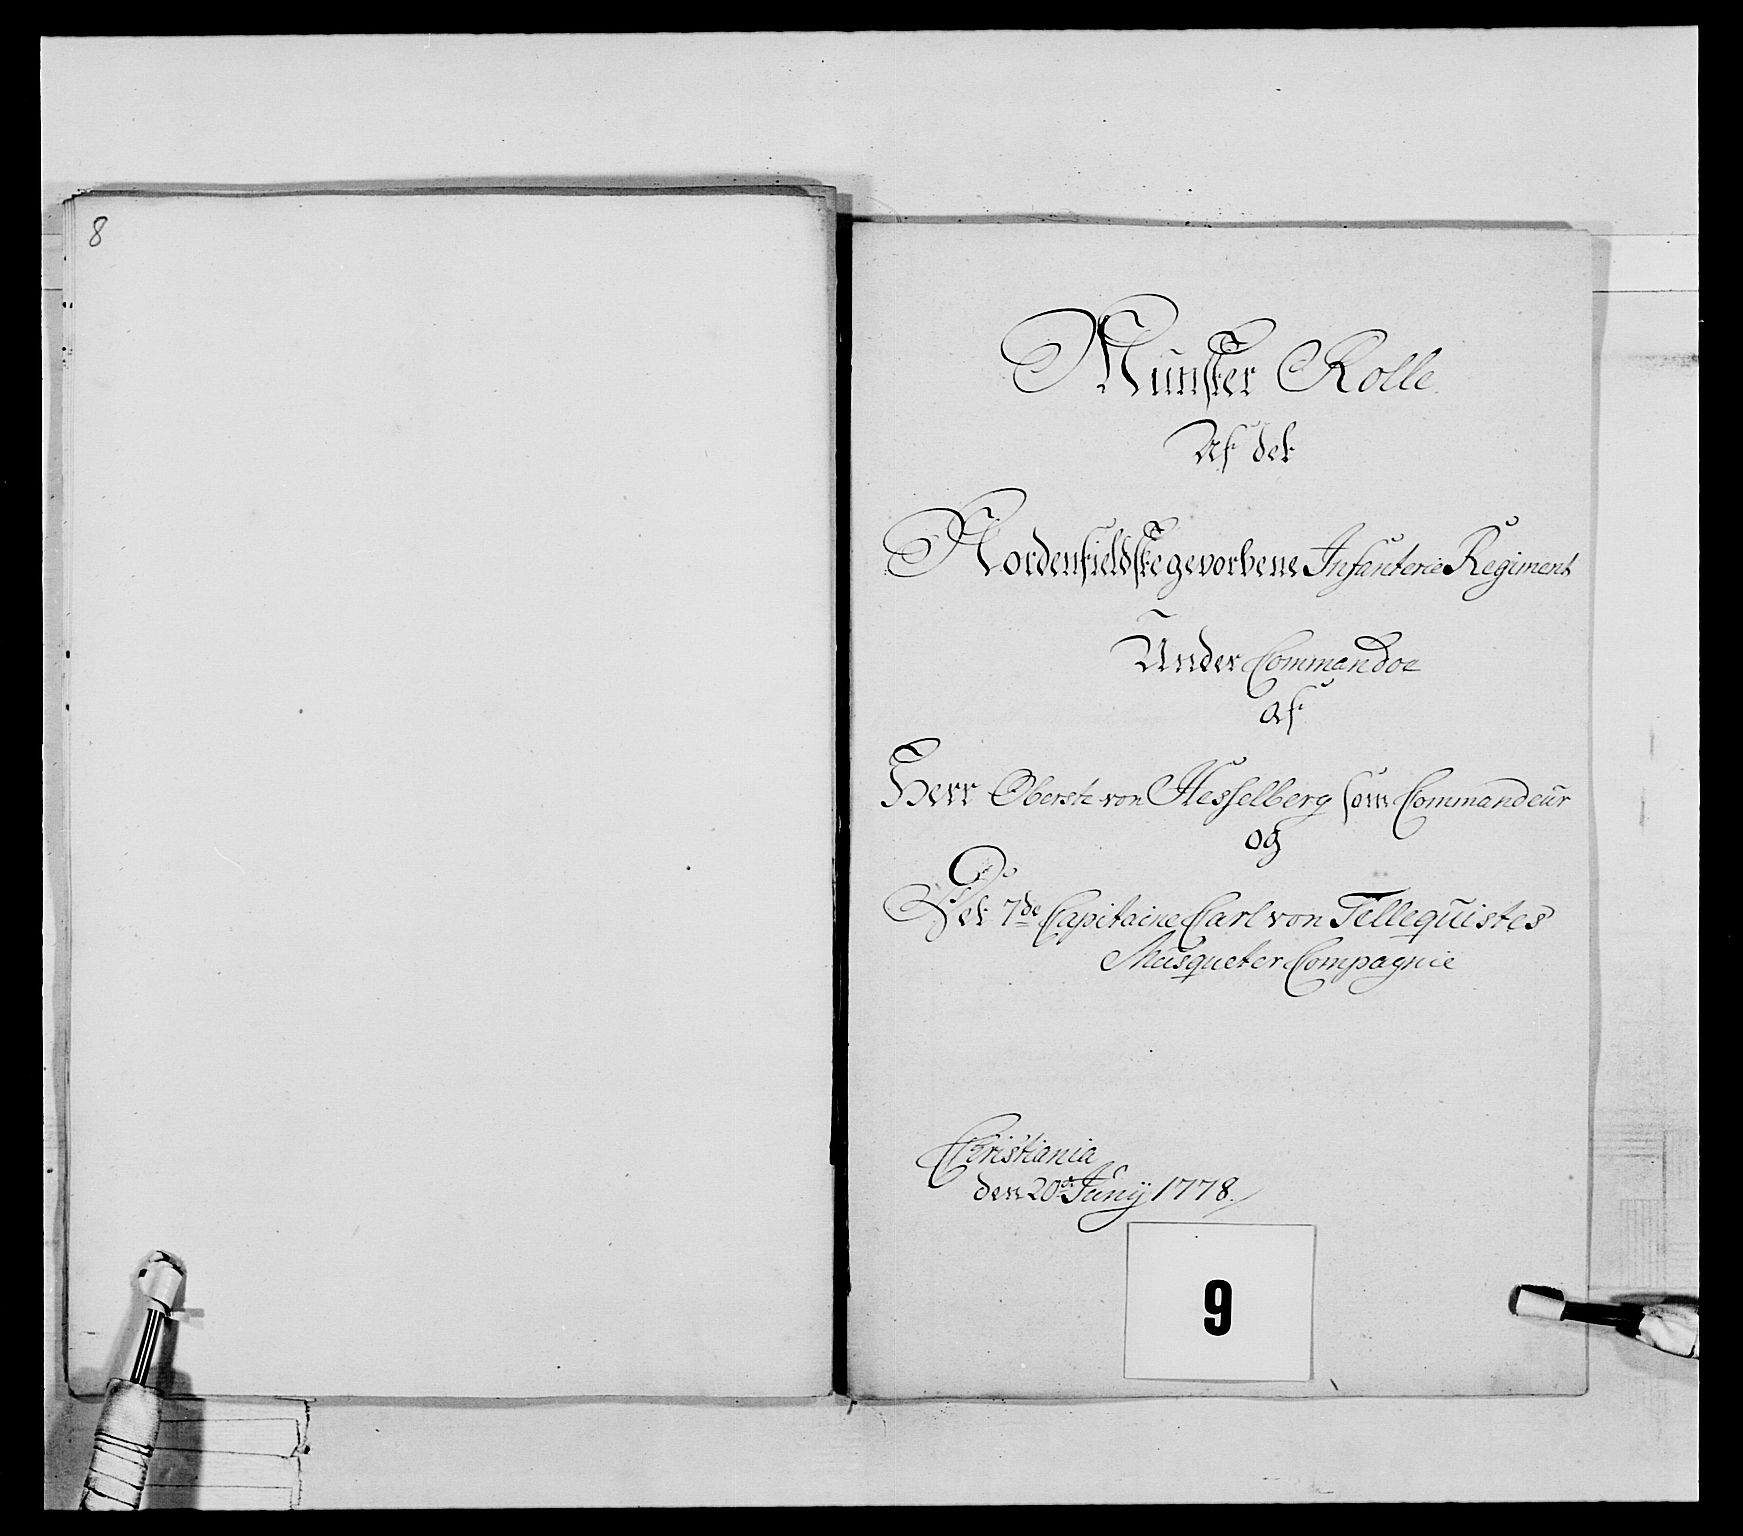 8
Münster Rolle
Af det
Nordenfieldske gevorbene Infanterie Regiment
Under Commandoe
af
Herr Oberste von Hesselberg som Commandeür
og
Det 7de Capitaine Carl von Tellequistes
Musqueter Compagnie
Christiania
den 20de Junÿ 1778./
9